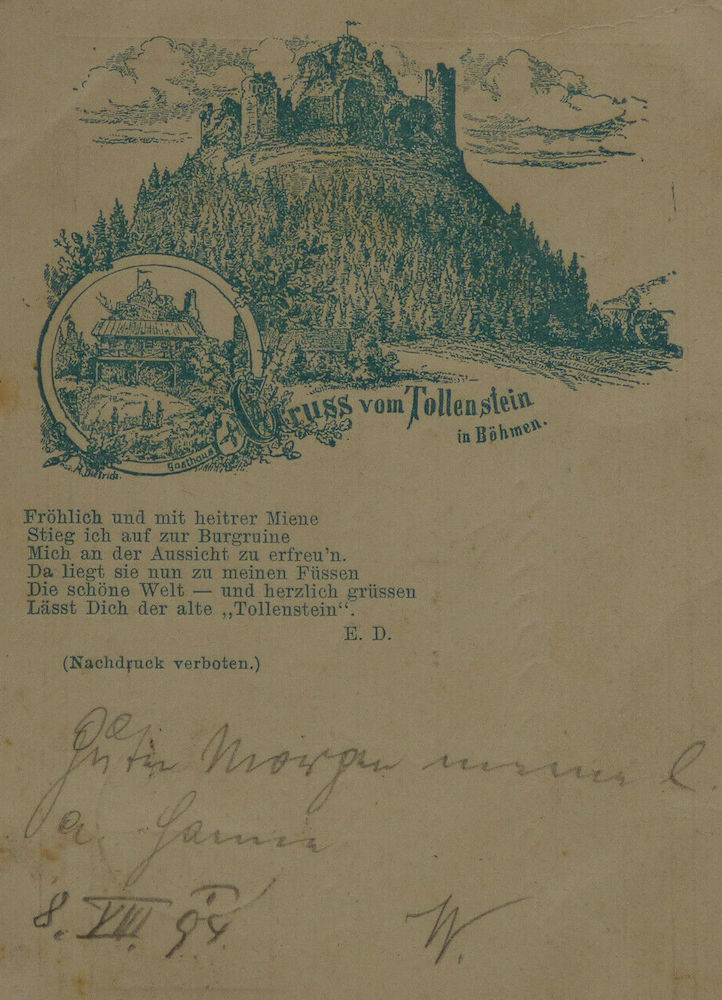 Gruss vom Tollenstein
in Böhmen.
Gasthaus
R. Dietrich.
Fröhlich und mit heitrer Miene
Stieg ich auf zur Burgruine
Mich an der Aussicht zu erfreu'n.
Da liegt sie nun zu meinen Füssen
Die schöne Welt — und herzlich grüssen
Lässt Dich der alte „Tollenstein“.
E. D.
(Nachdruck verboten.)
Guten Morgen meine l.
8. VIII. 94
W.